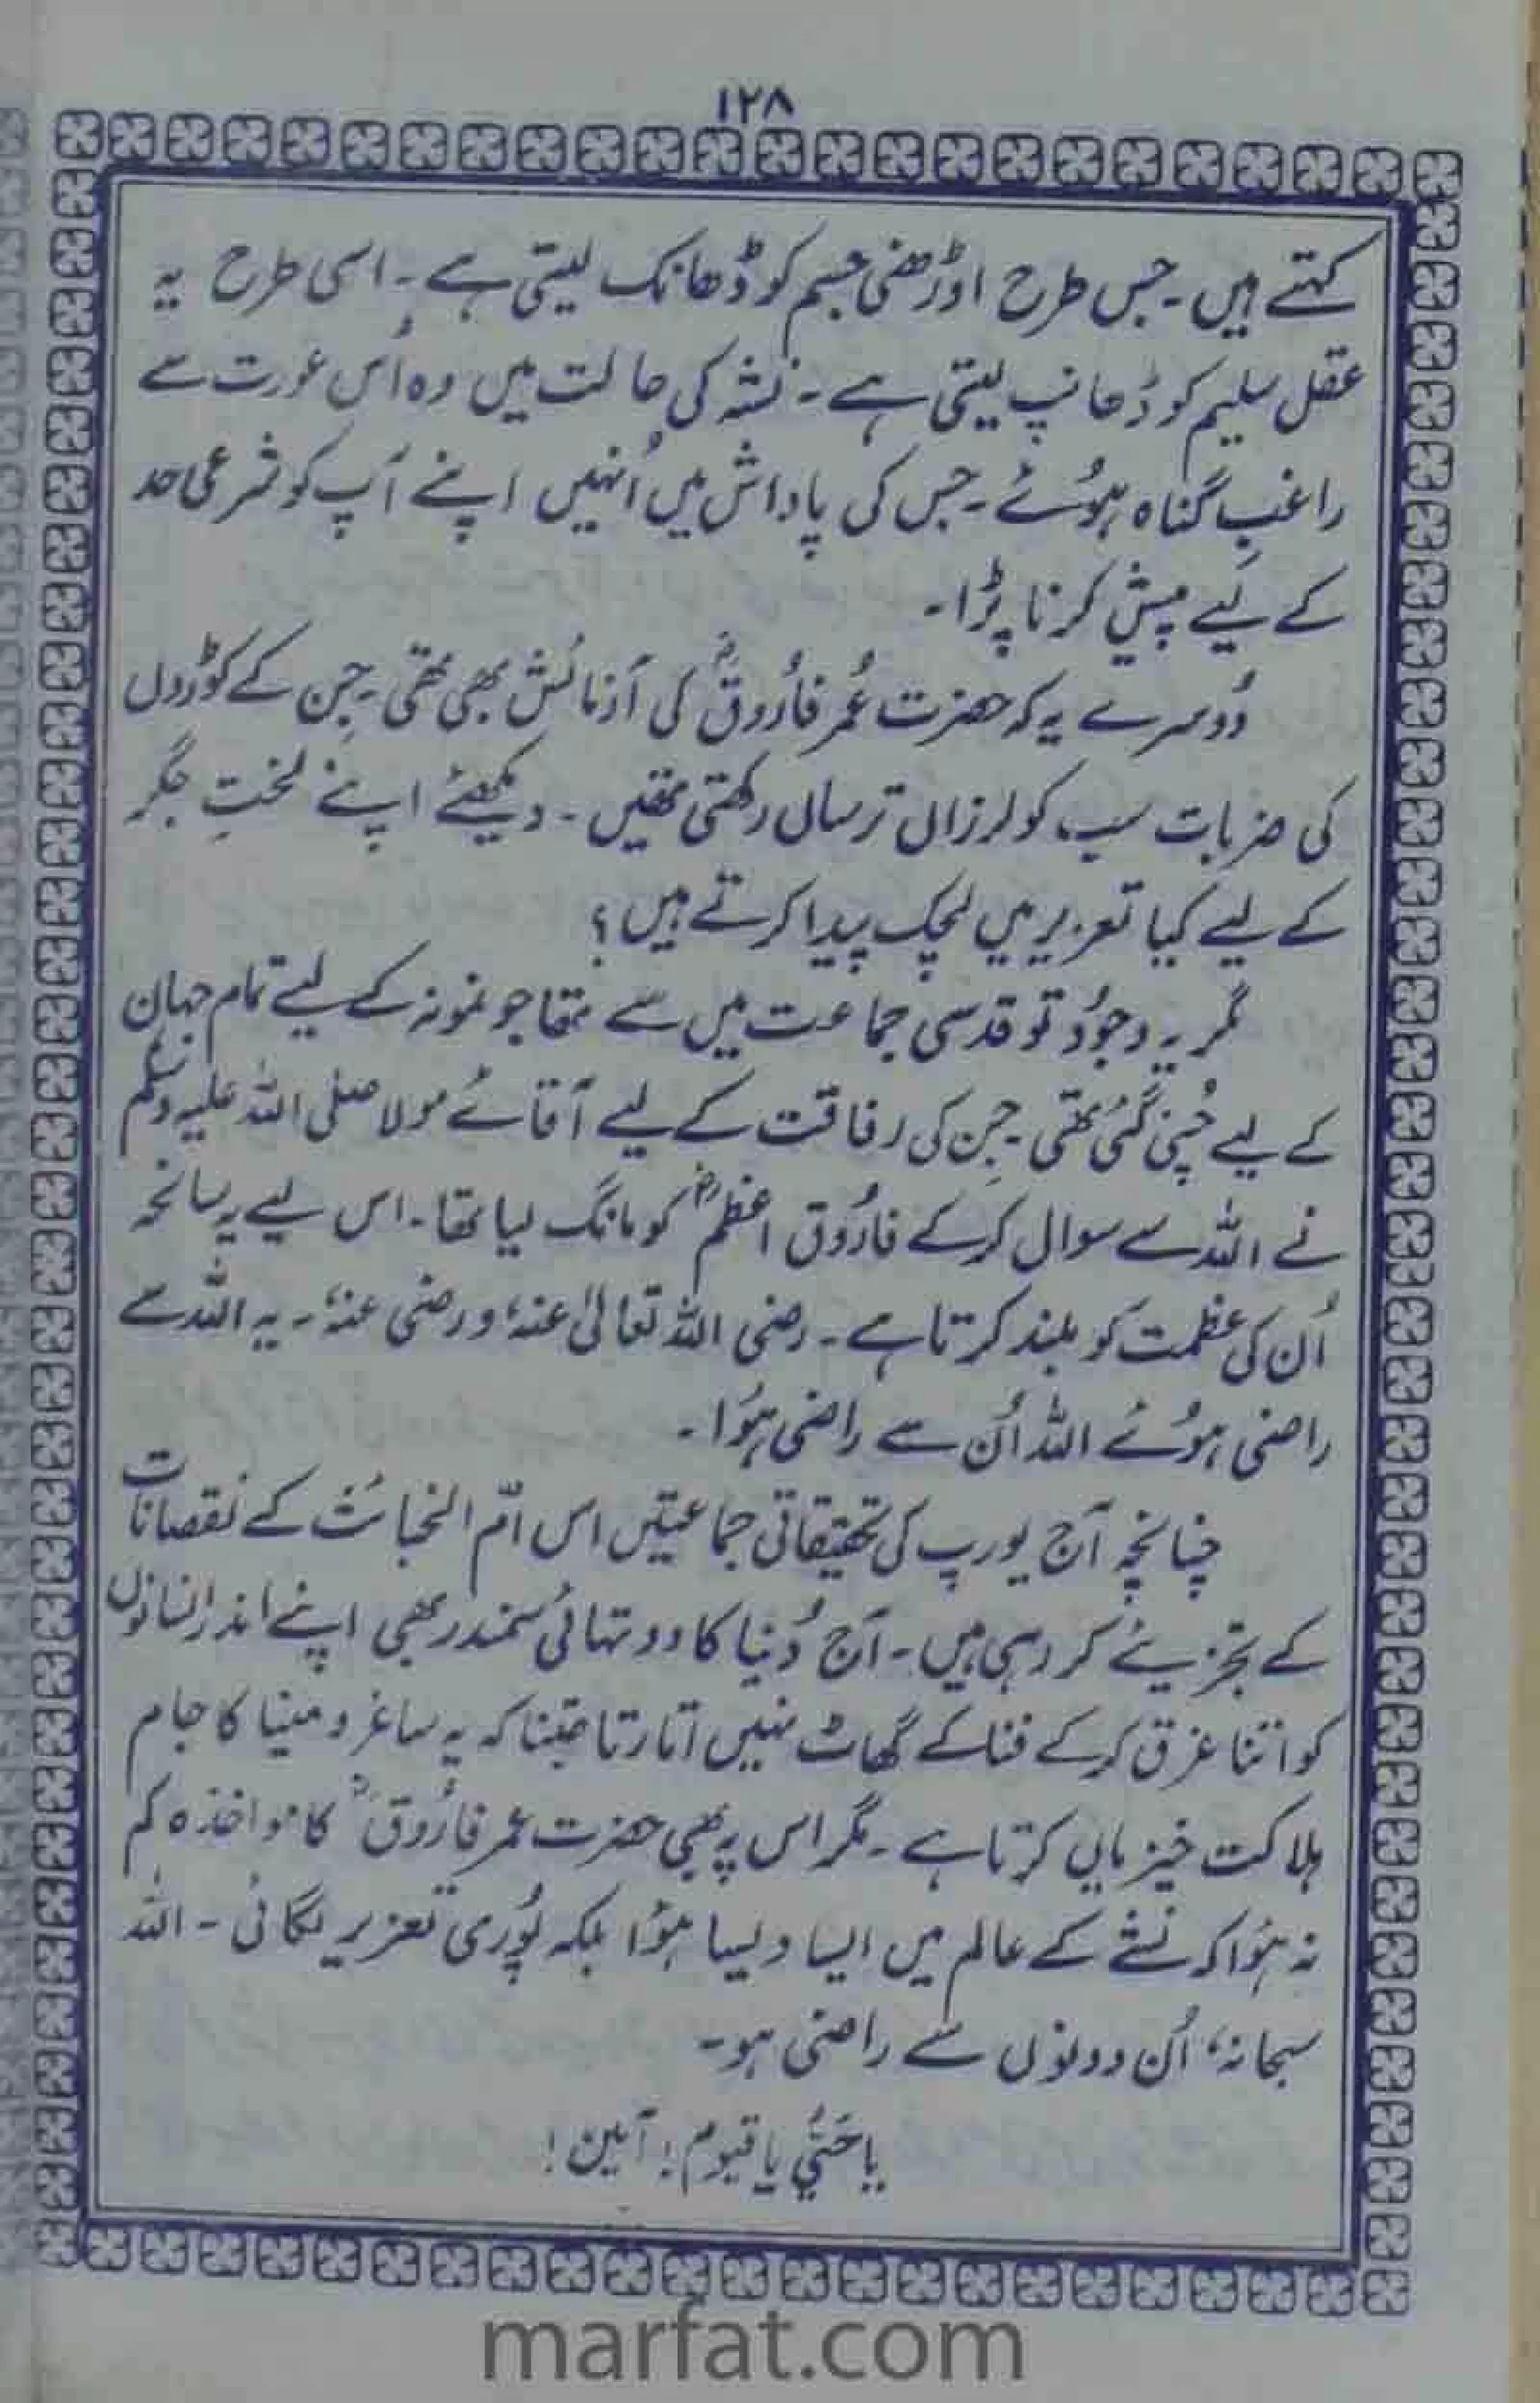 ۱۲۸
کہتے ہیں۔ جس طرح اوڑھنی جسم کو ڈھانک لیتی ہے۔ اسی طرح یہ
عقل سلیم کو ڈھانپ لیتی ہے۔ نشہ کی حالت میں وہ اُس عورت سے
راغبِ گناہ ہوُئے۔ جس کی پاداش میں اُنہیں اپنے آپ کو شرعی حد
کے لیے پیش کرنا پڑا۔
دُوسرے یہ کہ حضرت عُمر فارُوقؓ کی آزمائش بھی تھی۔ جِن کے کوڑوں
کی ضربات سب کو لرزاں ترساں رکھتی تھیں۔ دیکھئے اپنے لختِ جگر
کے لیے کیا تعزیر میں لچک پیدا کرتے ہیں؟
مگر یہ وجوُد تو قدسی جماعت میں سے تھا جو نمونہ کے لیے تمام جہان
کے لیے چُنی گئی تھی۔ جِن کی رفاقت کے لیے آقائے مولا صلی اللہ علیہ وسلم
نے اللہ سے سوال کر کے فارُوق اعظمؓ کو مانگ لیا تھا۔ اس لیے یہ سانحہ
اُن کی عظمت کو بلند کرتا ہے۔ رضی اللہ تعالیٰ عنہٗ و رضی عنہٗ۔ یہ اللہ سے
راضی ہوُئے اللہ اُن سے راضی ہوُا۔
چنانچہ آج یورپ کی تحقیقاتی جماعتیں اس اُمّ الخبائث کے نقصانات
کے تجزیئے کر رہی ہیں۔ آج دُنیا کا دو تہائی سمندر بھی اپنے اندر انسانوں
کو اتنا غرق کر کے فنا کے گھاٹ نہیں اتارتا جتنا کہ یہ ساغر و مینا کا جام
ہلاکت خیزیاں کرتا ہے۔ مگر اس پہ بھی حضرت عمر فارُوقؓ کا مواخذہ کم
نہ ہوُا کہ نشے کے عالم میں ایسا ویسا ہوُا بلکہ پُوری تعزیر لگائی۔ اللہ
سبحانہٗ اُن دونوں سے راضی ہو۔
یا حَیُّ یا قیوم! آمین!
marfat.com